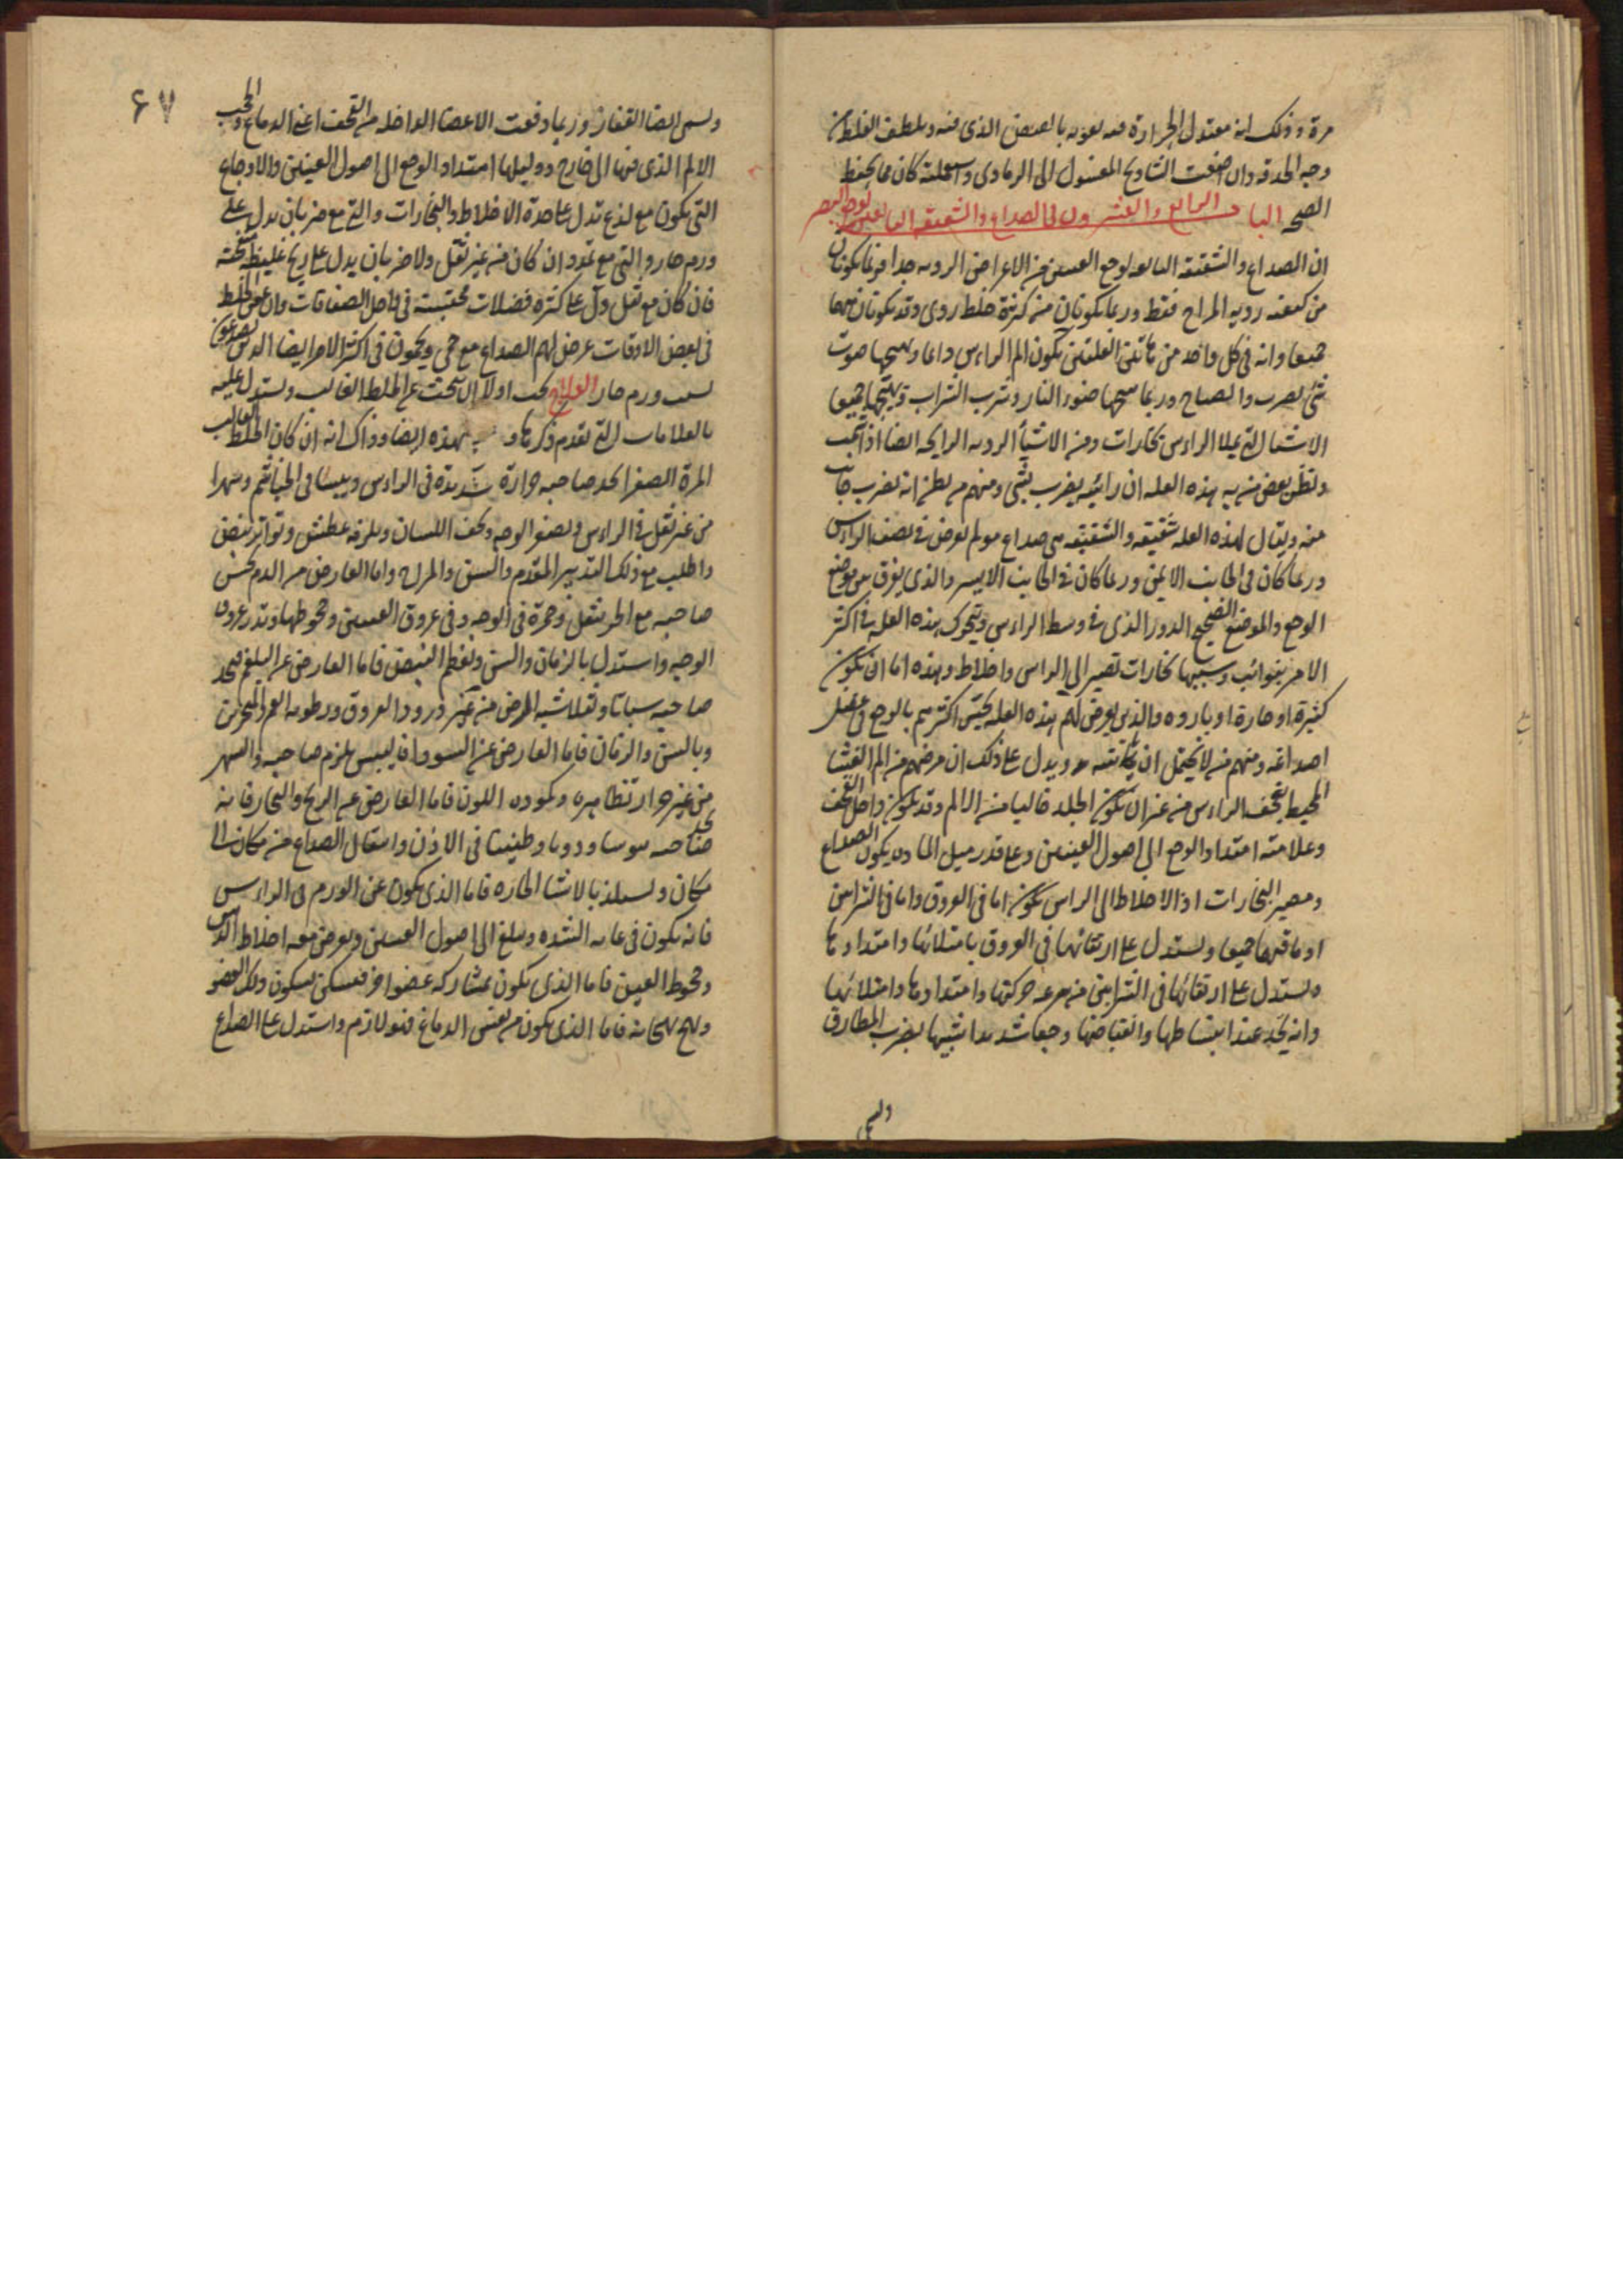 مرة وذلك انه معتدل الحرارة فيه تقويه بالقبض الذى فيه ويلطف الغلط من
وجه الحدقه وان اضفت الشادنج المغسول الى الرمادى واستعملته كان مما يحفظ
الصحه الباب الرابع والعشرون فى الصداع والشقيقه التابعين لوجع البصر
ان الصداع والشقيقه التابعه لوجع العينين من الاعراض الرديه جدا فربما يكونان
من كيفيه رديه المزاج فقط وربما يكونان من كثرة خلط ردى وقد يكونان منهما
جميعا وانه فى كل واحد من هاتين العلتين يكون الم الراس دايما ويهيجها صوت
شئ يضرب والصياح وربما هيجها ضوء النار وشرب الشراب ويهيجها جميعا
الاشيا التى تملا الراس بخارات ومن الاشيأ الرديه الرايحه ايضا اذا شمت
ويظن بعض من به هذه العله ان راسه يضرب بشى ومنهم من يظن انه يضرب جانب
منه ويقال لهذه العله شقيقه والشقيقه هى صداع مولم يعرض فى نصف الراس
وربما كان فى الجانب الايمن وربما كان فى الجانب الايسر والذى يفرق بين موضع
الوجع والموضع الصحيح الدور الذى فى وسط الراس ويتحرك هذه العله فى اكثر
الامر بنوائب وسببها بخارات تصير الى الراس واخلاط وهذه اما ان تكون
كثيرة او حارة او بارده والذين يعرض لهم هذه العله يحس اكثرهم بالوجع فى عضل
اصداغه ومنهم من لا يحتمل ان يلامسه ويدل على ذلك ان مرضهم من الم الغشا
المحيط بقحف الراس من غير ان تكون الجلد خاليا من الالم وقد تكون داخل القحف
وعلامته امتداد الوجع الى اصول العينين وعلى قدر ميل الماده يكون الصداع
ومصير البخارات او الاخلاط الى الراس يكون اما فى العروق واما فى الشرايين
او ما فيهما جميعا ويستدل على ارتقائها فى العروق بامتلائها وامتدادها
ويستدل على ارتقائها فى الشرايين من سرعه حركتها وامتدادها وامتلائها
وانه يجد عند انبساطها وانقباضها وجعا شديدا شبيها بضرب المطارق
وليسمى
٦٧
وليسمى ايضا القفاز وربما دفعت الاعضا الداخله من القحف اعنى الدماغ والحجب
الالم الذى فيها الى خارج ودليلها امتداد الوجع الى اصول العينين والاوجاع
التى يكون مع لذع تدل على حدة الاخلاط والبخارات والتى مع ضربان يدل على
ورم حار والتى مع تمدد ان كان من غير ثقل ولا ضربان يدل على ريح غليظه
فان كان مع ثقل دل على كثره فضلات محتبسة فى داخل الصفاقات وان عفن الخلط
فى بعض الاوقات عرض لهم الصداع مع حمى ويحمون فى اكثر الامر ايضا الذين يصدعون
بسبب ورم حار العلاج يجب اولا ان تبحث عن الخلط الغالب وتستدل عليه
بالعلامات التى تقدم ذكرها و بهذه ايضا وذاك انه ان كان الخلط الغالب
المرة الصفرا يجد صاحبه حرارة شديدة فى الراس ويبسا فى الخياشم وسهرا
من غير ثقل فى الراس ويصفر الوجه ويجف اللسان ويلزمه عطش وتواتر نبض
واطلب مع ذلك التدبير المتقدم والسن والمزاج واما العارض من الدم يحس
صاحبه مع الحر بثقل وحمرة فى الوجه وفى عروق العينين وجحوظها وتدر عروق
الوجه واستدل بالزمان والسن وبعظم النبض فاما العارض عن البلغم فيجد
صاحبه سباتا وثقلا شبه المرض من غير درور العروق ورطوبه الفم والمنخرين
وبالسن والزمان فاما العارض عن السودا فاليبس يلزم صاحبه والسهر
من غير حرارة ظاهره وكموده اللون فاما العارض عن الريح والبخار فانه
يجد صاحبه وسواسا ودويا وطنينا فى الاذن وانتقال الصداع من مكان الى
مكان ويستلذ بالاشيا الحاره فاما الذى يكون عن الورم فى الراس
فانه يكون فى غايه الشده ويبلغ الى اصول العينين ويعرض معه اختلاط الذهن
وجحوظ العين فاما الذى يكون بمشاركه عضو اخر فيسكن بسكون ذلك العضو
ويهيج بهيجانه فاما الذى يكون من نفس الدماغ فهو لازم واستدل على الصداع